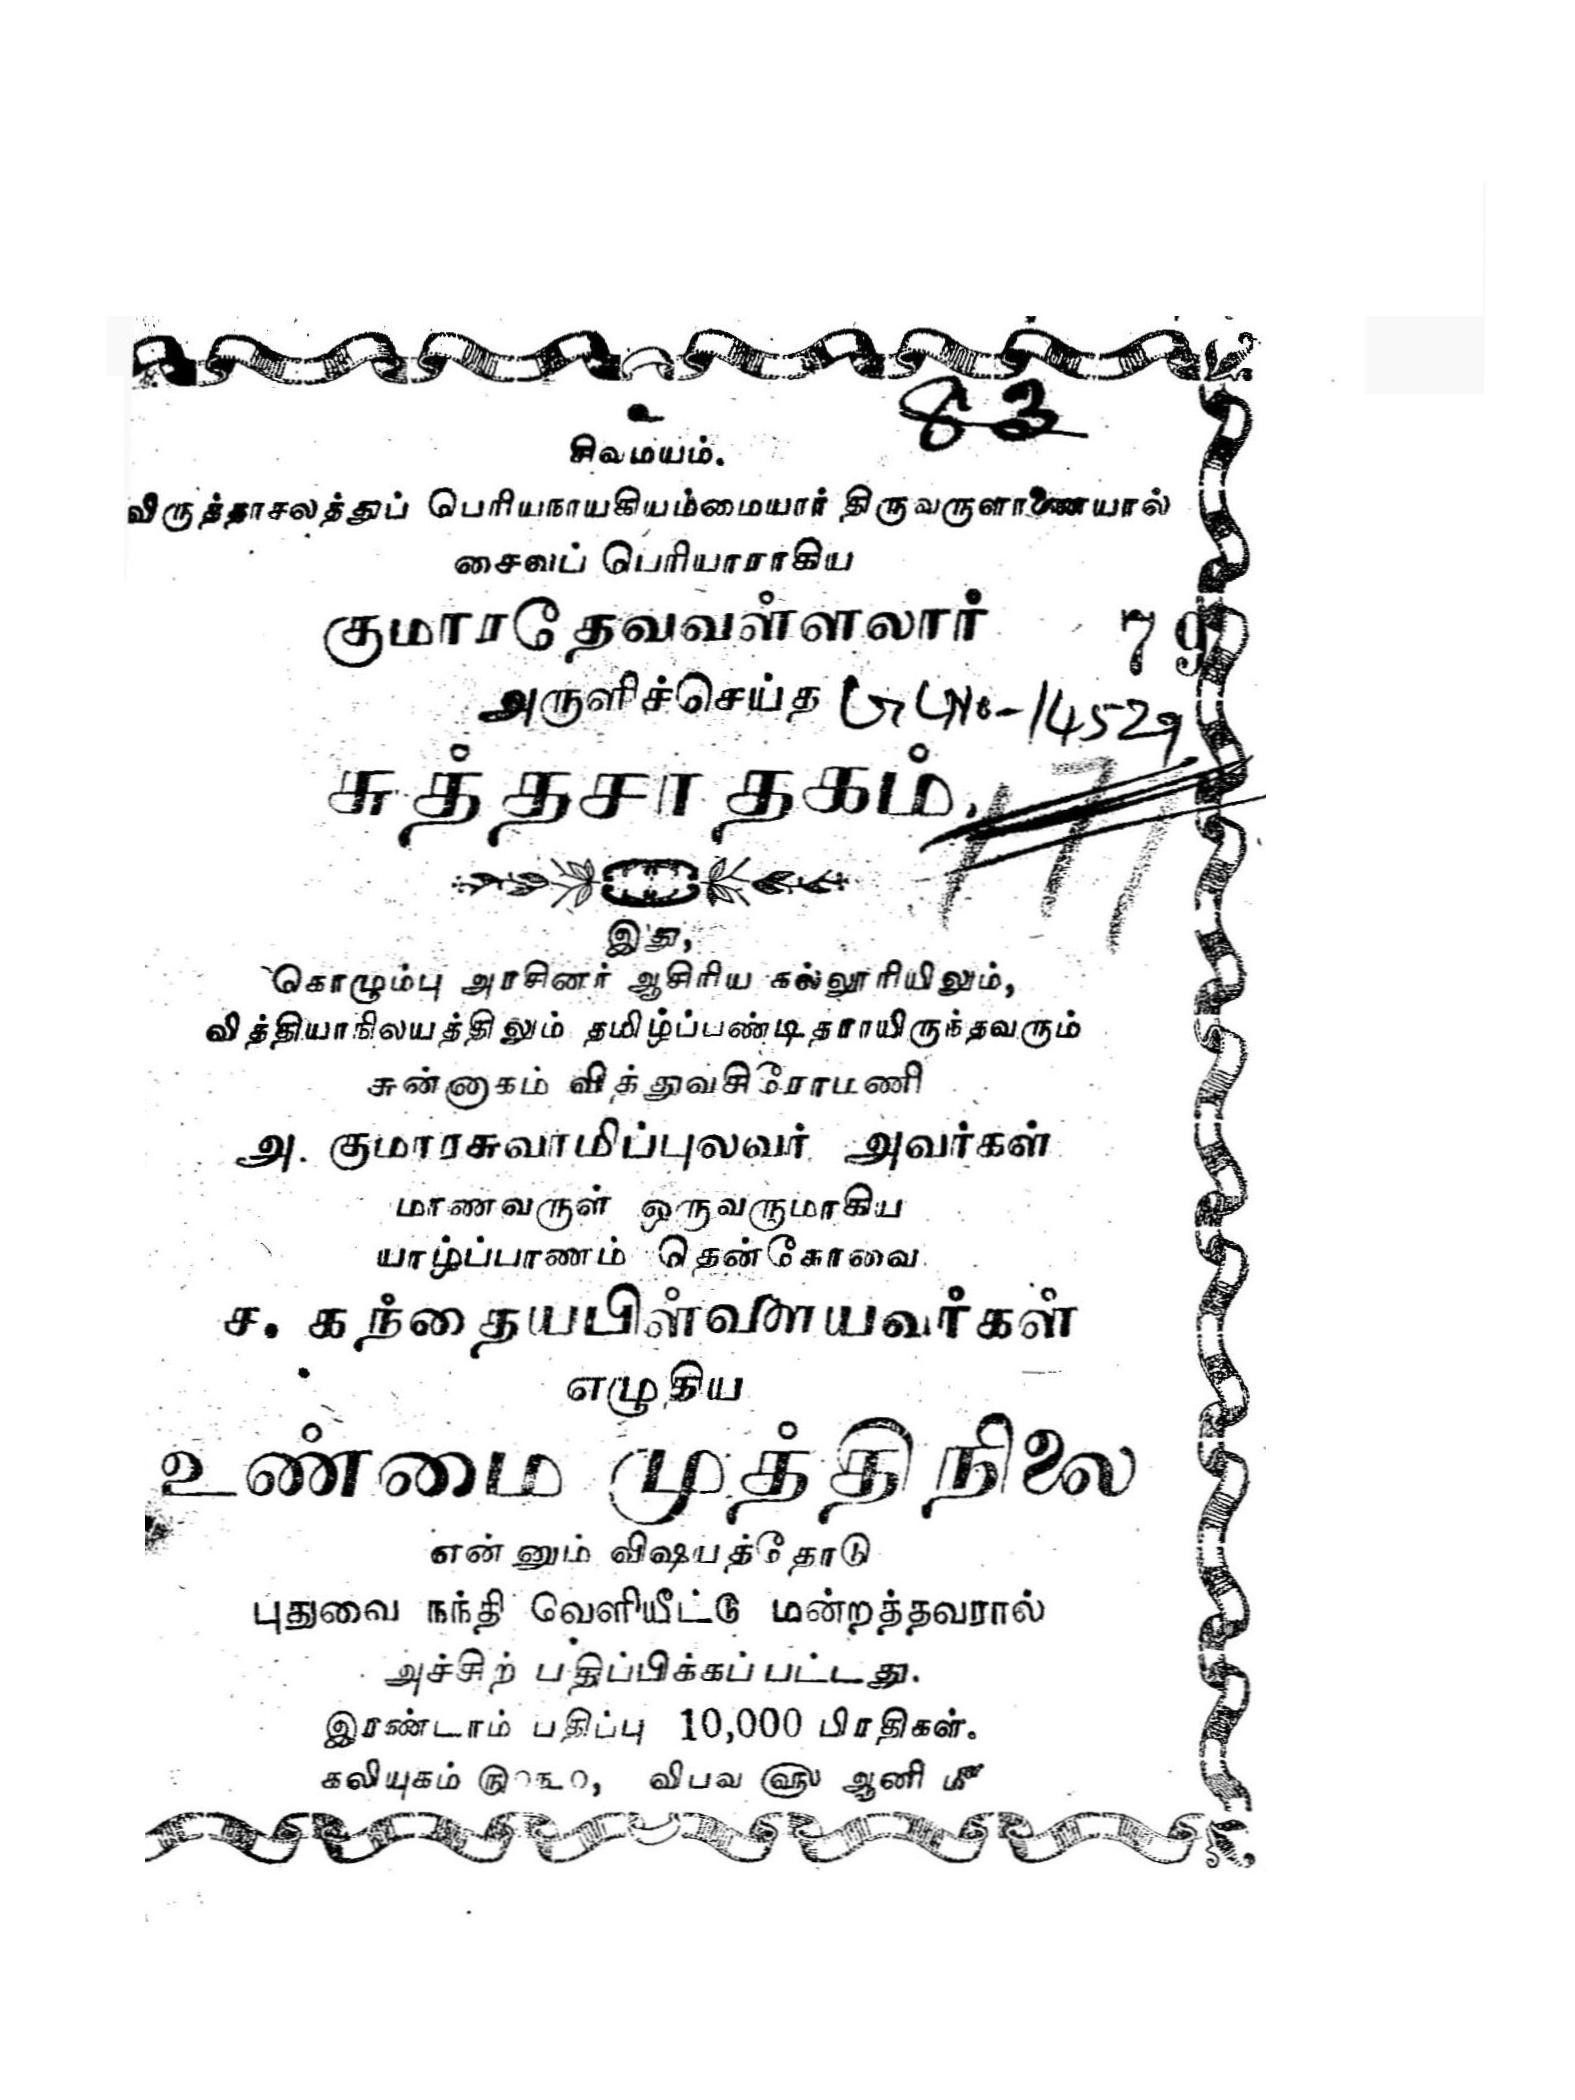 உ
83
சிவமயம்.
விருத்தாசலத்துப் பெரியநாயகியம்மையார் திருவருளாணையால்
சைவப் பெரியாராகிய
குமாரதேவவள்ளலார்
79
அருளிச்செய்த
14529
சுத்தசாதகம்.
177
இது,
கொழும்பு அரசினர் ஆசிரிய கல்லூரியிலும்,
வித்தியாநிலயத்திலும் தமிழ்ப்பண்டிதராயிருந்தவரும்
சுன்னாகம் வித்துவசிரோமணி
அ. குமாரசுவாமிப்புலவர் அவர்கள்
மாணவருள் ஒருவருமாகிய
யாழ்ப்பாணம் தென்கோவை
ச. கந்தையபிள்ளையவர்கள்
எழுதிய
உண்மை முத்திநிலை
என்னும் விஷயத்தோடு
புதுவை நந்தி வேளியீட்டு மன்றத்தவரால்
அச்சிற் பதிப்பிக்கப்பட்டது.
இரண்டாம் பதிப்பு 10,000 பிரதிகள்.
கலியுகம் ௫௦௩௦, விபவ ௵ ஆனி ௴